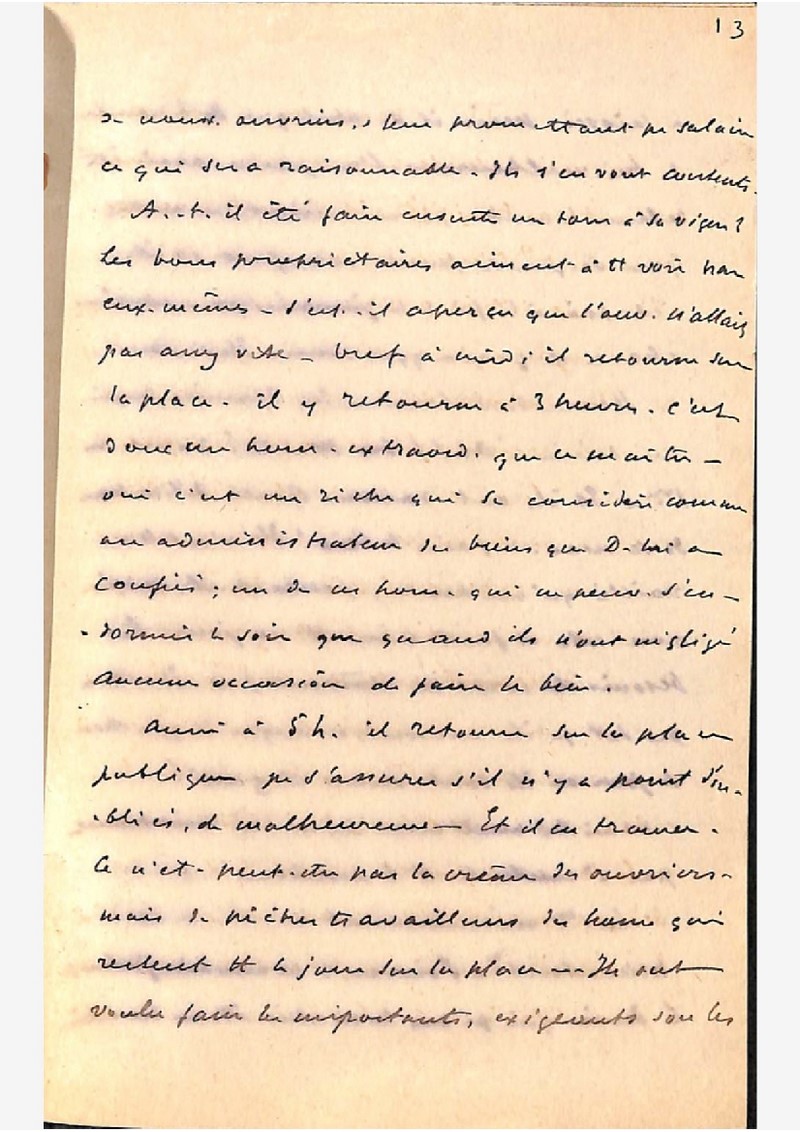 13
de nouv. ouvriers, leur promettant pr salaire
ce qui sera raisonnable. Ils s'en vont contents.
A.-t. il été faire ensuite un tour à sa vigne ?
Les bons propriétaires aiment à tt voir par
eux-mêmes – s'est-il aperçu que l'ouv. n'allait
pas assez vite – bref à midi il retourne sur
la place. il y retourne à 3 heures. c'est
donc un hom. extraord. que ce maître –
oui c'est un riche qui se considère comme
un administrateur des biens que D. lui a
confiés ; un de ces hom. qui ne peuv. s'en-
-dormir le soir que quand ils n'ont négligé
aucune occasion de faire le bien.
Aussi à 5 h. il retourne sur la place
publique pr s'assurer s'il n'y a point d'ou-
-bliés, de malheureux – Et il en trouve.
Ce n'est-peut-être pas la crème des ouvriers-
mais de piètres travailleurs des hom. qui
restent tt le jour sur la place – Ils ont
voulu faire les importants, exigeants sur les